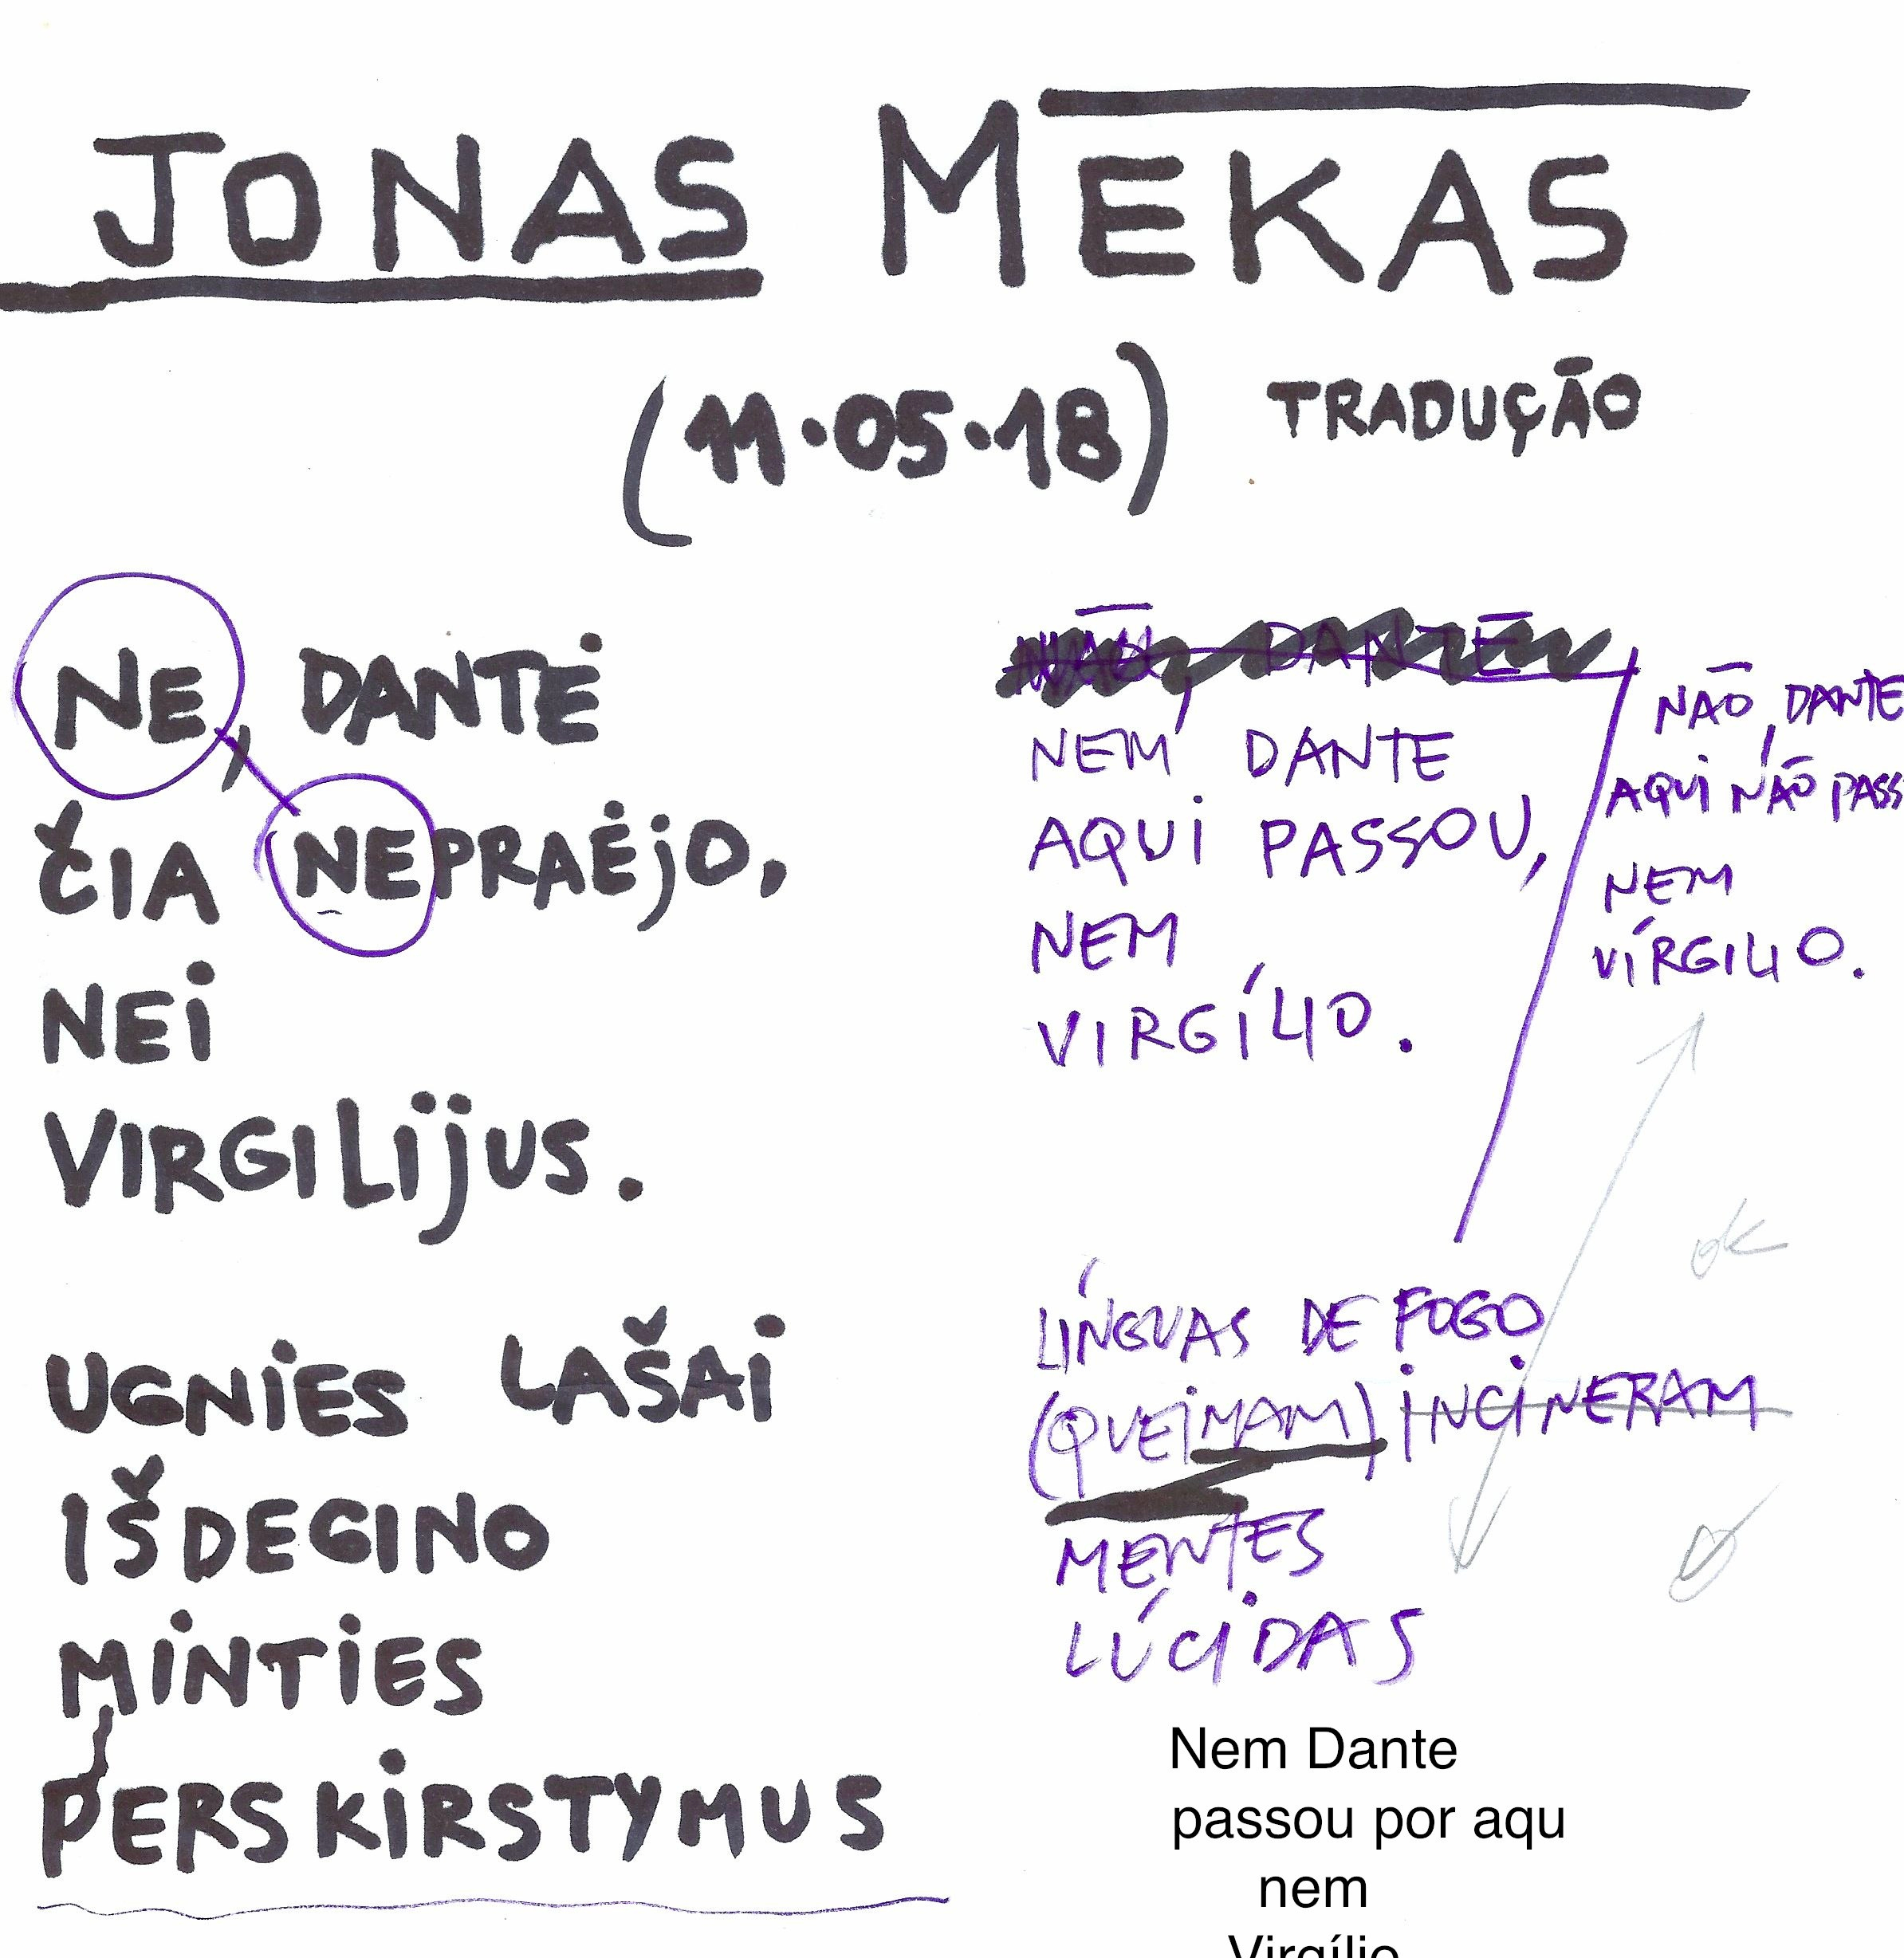 JONAS MEKAS
(11.05.18) TRADUÇÃO
NE, DANTĖ
ČIA NEPRAĖjO,
NEi
VIRGILijUS.
UGNiES LAŠAi
IŠDEGINO
MiNTiES
PERSKiRSTYMUS
NÃO, DANTE
NEM, DANTE
AQUi PASSOU,
NEM
VIRGÍLIO.
NÃO, DANTE
AQUi NÃO PASS
NEM
VÍRGILIO.
ok
LÍNGUAS DE FOGO
(QUEiMAM) iNCiNERAM
MENTES
LÚCiDAS
Nem Dante
passou por aqu
nem
Virgílio